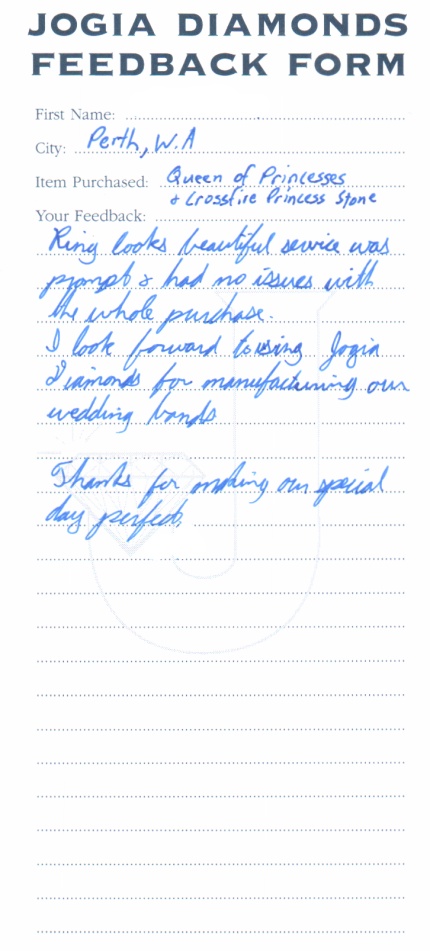 JOGIA DIAMONDS
FEEDBACK FORM
First Name:
City: Perth, W.A
Item Purchased: Queen of Princesses
& Crossfire Princess Stone
Your Feedback:
Ring looks beautiful service was
prompt & had no issues with
the whole purchase.
I look forward to using Jogia
Diamonds for manufacturing our
wedding bands
Thanks for making our special
day perfect.